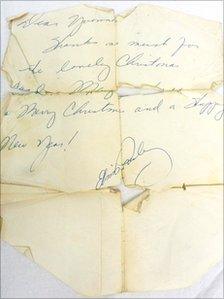 Dear
Thanks so much for
the lovely Christmas
a Merry Christmas and a Happy
New Year!